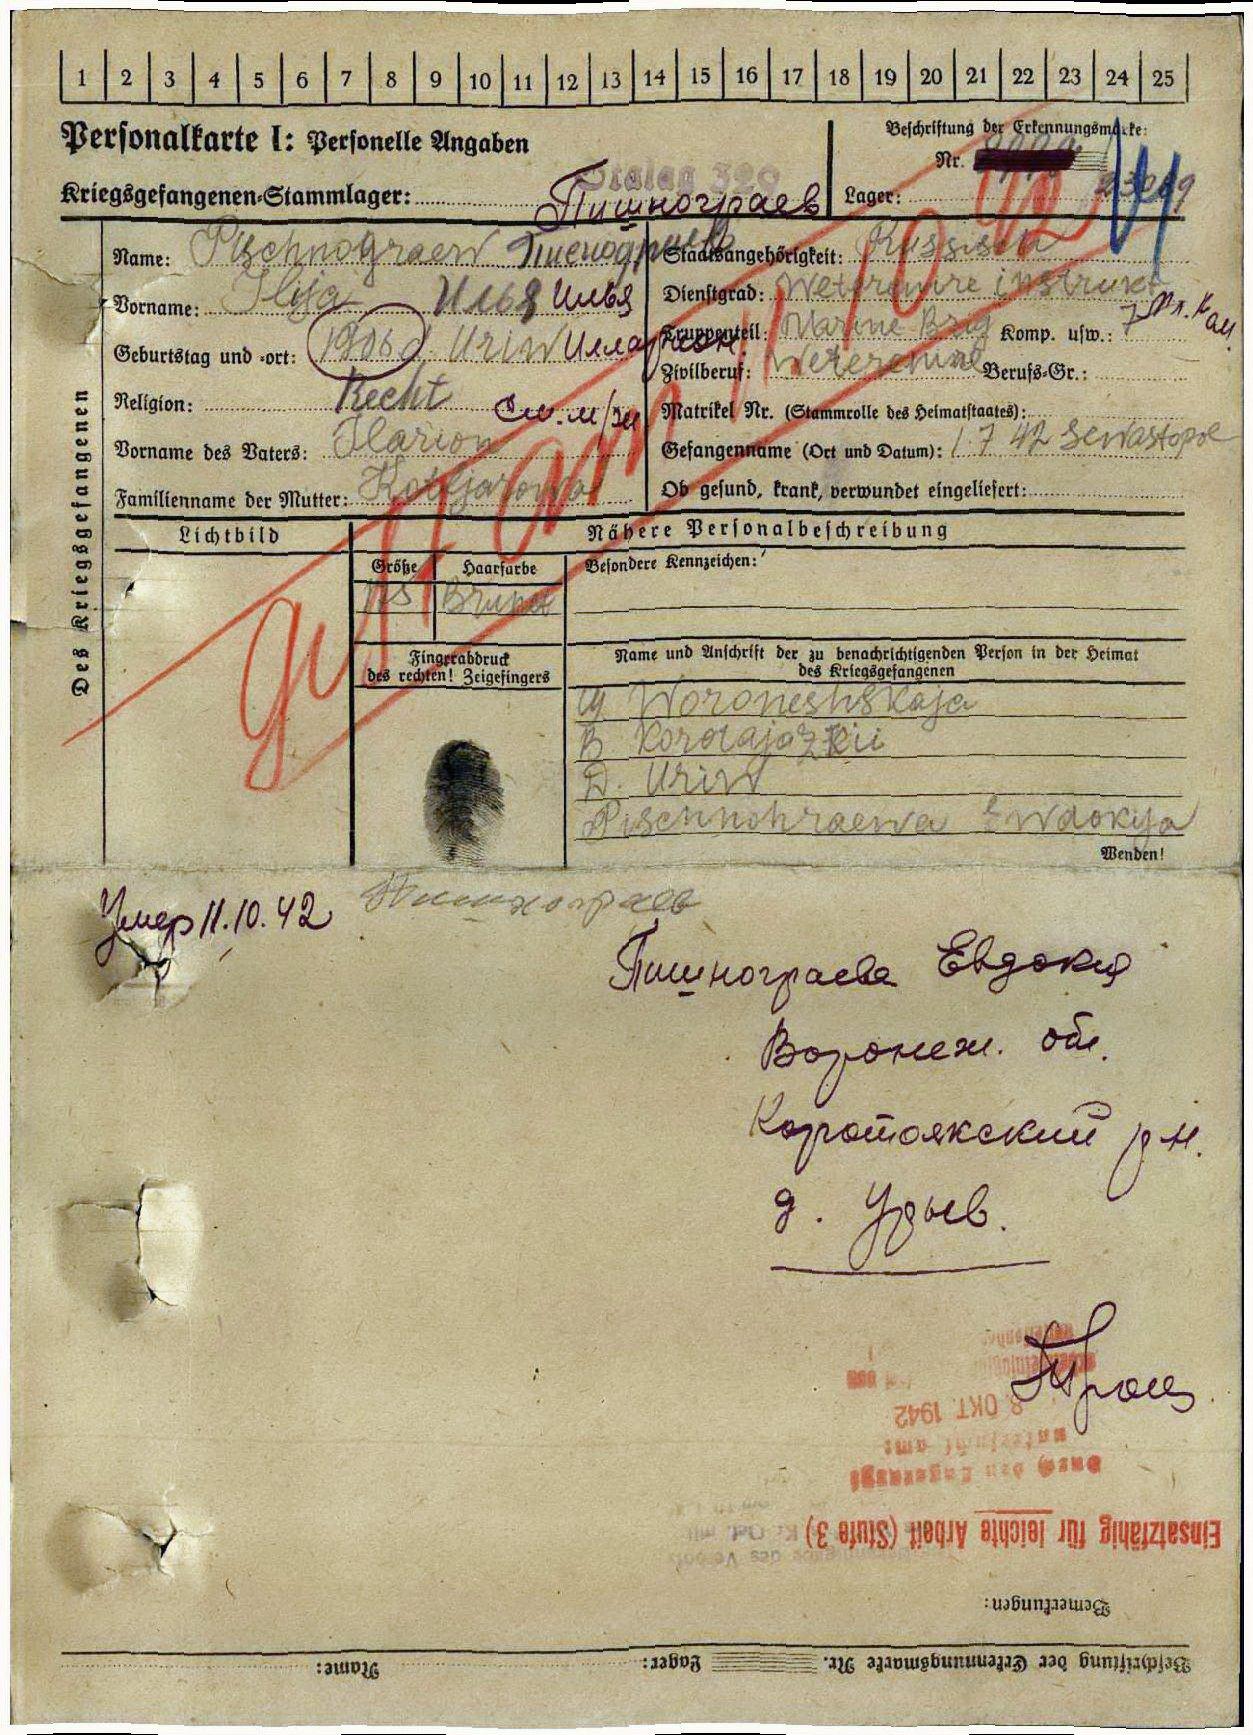 1 2 3 4 5 6 7 8 9 10 11 12 13 14 15 16 17 18 19 20 21 22 23 24 25
Personalkarte I: Personelle Angaben
Beschriftung der Erkennungsmarke:
Nr.
Kriegsgefangenen-Stammlager: Stalag 329
Пшнограев
Lager:
Des Kriegsgefangenen
Name: Pischnograew
Staatsangehörigkeit: Russisch
Vorname: Ilija Илья Илья
Dienstgrad:
Geburtstag und -ort: 1906 Uriw
Truppenteil: Marine-Brig Komp. usw.: 7
Zivilberuf: Berufs-Gr.:
Religion: Recht
Matrikel Nr. (Stammrolle des Heimatstaates):
Vorname des Vaters: Ilarion
Gefangenname (Ort und Datum): 1.7 42 Sewastopol
Familienname der Mutter: Kotljarowa
Ob gesund, krank, verwundet eingeliefert:
gest. am 11.10.42
Lichtbild
Nähere Personalbeschreibung
Größe Haarfarbe
Besondere Kennzeichen:
175 Brunet
Fingerabdruck
des rechten! Zeigefingers
Name und Anschrift der zu benachrichtigenden Person in der Heimat
des Kriegsgefangenen
Woroneshskaja
D. Uriw
Pischnohraewa Ewdokija
Wenden!
Умер 11.10.42
Пишнограев
Пишнограева Евдокия
Воронеж. обл.
Коротоякский р-н.
д. Урыв.
8. OKT. 1942
Einsatzfähig für leichte Arbeit (Stufe 3)
Bemerkungen:
Beschriftung der Erkennungsmarke Nr. Lager: Name: